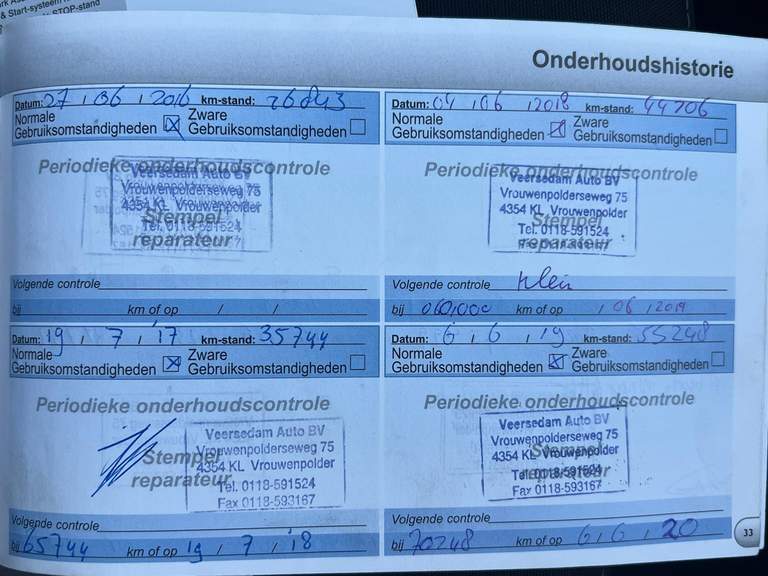 & Start-systeem
STOP-stand
Onderhoudshistorie
Datum: 27 / 06 / 2016 km-stand: 26843
Normale Gebruiksomstandigheden ☒ Zware Gebruiksomstandigheden ☐
Periodieke onderhoudscontrole
Stempel reparateur
Veersedam Auto BV
Vrouwenpolderseweg 75
4354 KL Vrouwenpolder
Tel. 0118-591524
Volgende controle
bij km of op / /
Datum: 04 / 06 / 2018 km-stand: 44706
Normale Gebruiksomstandigheden ☒ Zware Gebruiksomstandigheden ☐
Periodieke onderhoudscontrole
Stempel reparateur
Veersedam Auto BV
Vrouwenpolderseweg 75
4354 KL Vrouwenpolder
Tel. 0118-591524
Fax 0118-593167
Volgende controle klein
bij 060,000 km of op / 06 / 2019
Datum: 19 / 7 / '17 km-stand: 35744
Normale Gebruiksomstandigheden ☒ Zware Gebruiksomstandigheden ☐
Periodieke onderhoudscontrole
Stempel reparateur
Veersedam Auto BV
Vrouwenpolderseweg 75
4354 KL Vrouwenpolder
Tel. 0118-591524
Fax 0118-593167
Volgende controle
bij 65744 km of op 19 / 7 / '18
Datum: 6 / 6 / 19 km-stand: 55248
Normale Gebruiksomstandigheden ☒ Zware Gebruiksomstandigheden ☐
Periodieke onderhoudscontrole
Stempel reparateur
Veersedam Auto BV
Vrouwenpolderseweg 75
4354 KL Vrouwenpolder
Tel. 0118-591524
Fax 0118-593167
Volgende controle
bij 70248 km of op 6 / 6 / 20
33